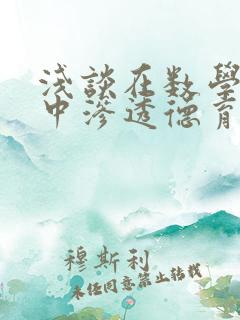 浅談在数學
中滲透德育
穆斯利
未经同意禁止转载